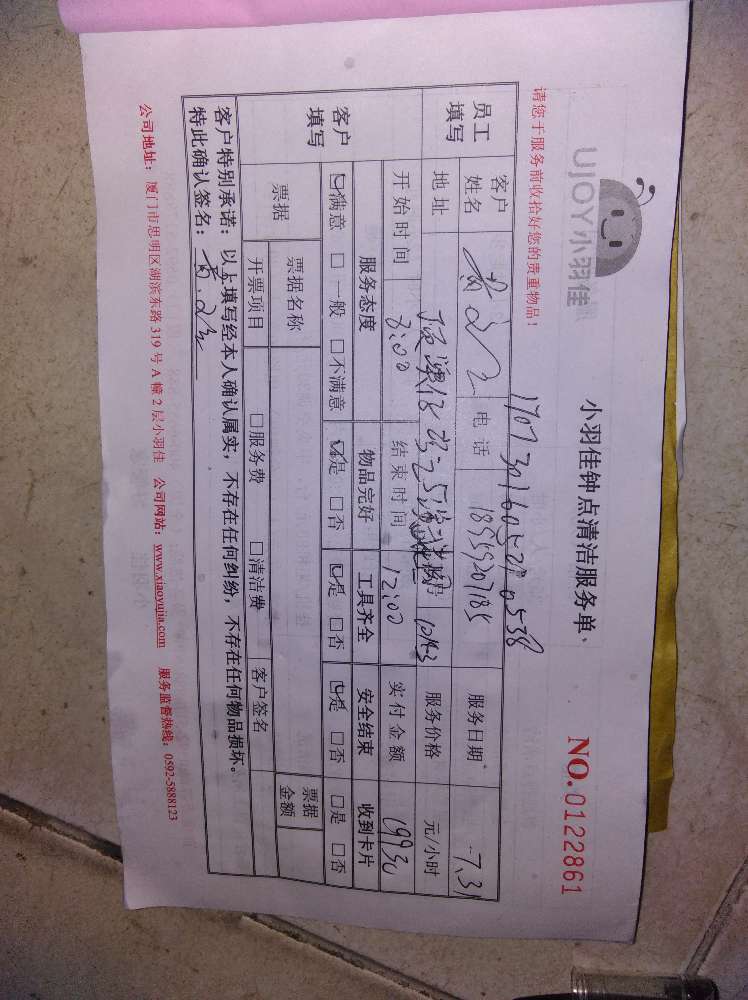 UJOY小羽佳
小羽佳钟点清洁服务单
NO.0122861
请您于服务前收拾好您的贵重物品！
员工填写
客户姓名
电话 18959207185
服务日期 7.31
地址
服务价格 元/小时
开始时间 8:00 结束时间 12:00 实付金额
客户填写
服务态度 物品完好 工具齐全 安全结束 收到卡片
☑满意 □一般 □不满意 ☑是 □否 ☑是 □否 ☑是 □否 □是 □否
票据 票据名称 票据金额
开票项目 □服务费 □清洁费 客户签名
客户特别承诺：以上填写经本人确认属实，不存在任何纠纷，不存在任何物品损坏。
特此确认签名：
公司地址：厦门市思明区湖滨东路 319 号 A 幢 2 层小羽佳 公司网站：www.xiaoyujia.com 服务监督热线：0592-5888123